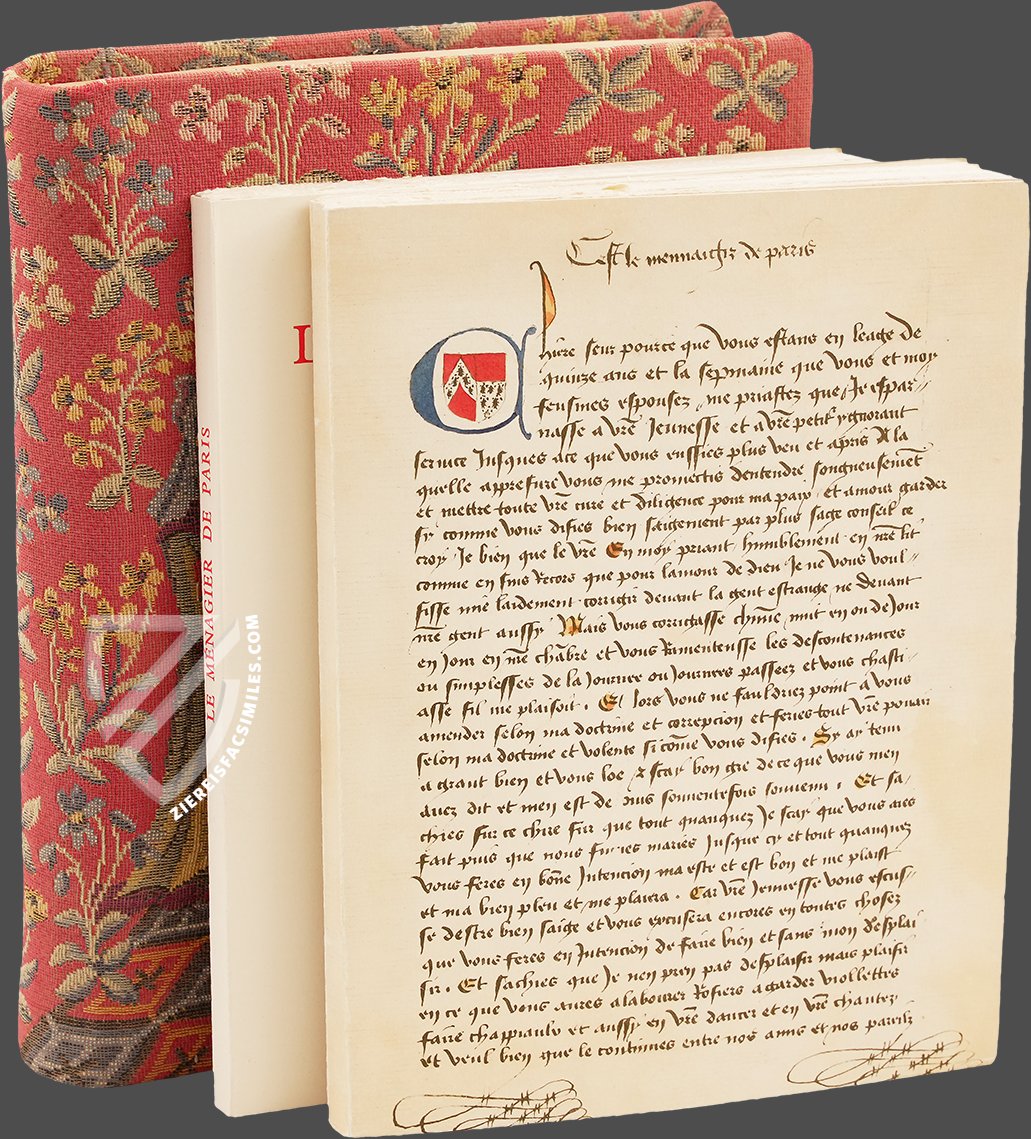 LE MENAGIER DE PARIS
ZIEREISFACSIMILES.COM
Cest le mennaigir de paris
Chiere seur pource que vous estans en leage de
quinze ans et la sepmaine que vous et moy
feusmes espousez me priastez que Je espar-
nasse a vr̄e Jeunesse et a vr̄e petit et ygnorant
seruice Jusques ace que vous eussies plus veu et apris A la
quelle appresure vous me promectis dentendre songneusemēt
et mettre toute vr̄e cure et diligence pour ma paix et amour garder
sy comme vous disies bien saigement par plus sage conseil ce
croy Je bien que le vr̄e En moy priant humblement en nr̄e lit
comme en suis Recors que pour lamour de dieu Je ne vous voul-
sisse mie laidement corrigir deuant la gent estrange ne deuant
nr̄e gent aussy Mais vous corrigasse chūne nuit en ou de Jour
en Jour en nr̄e chābre et vous Ramenteusse les descontenances
ou simplesses de la Journee ou Journees passeez et vous chasti-
asse sil me plaisoit . Et lors vous ne fauldriez point A vous
amender selon ma doctrine et correpcion et feries tout vr̄e pouair
selon ma doctrine et volente si cōme vous disies . Sy ay tenu
a grant bien et vous loe et scay bon gre de ce que vous men
auez dit et men est depuis souuentesfois souuenu . Et sa-
chies sur ce chiere seur que tout quanquez Je scay que vous aues
fait puis que nous fusmes maries Jusque cy et tout quanquez
vous feres en bōne Intencion ma este et est bon et me plaist
et ma bien pleu et me plaira . Car vr̄e Jeunesse vous escus-
se destre bien saige et vous excusera encores en toutes chosez
que vous feres en Intencion de faire bien et sans mon desplai
sir . Et sachies que Je nen pren pas desplaisir mais plaisir
en ce que vous aures alabourer Rosiers a garder viollettes
faire chappiaulx et aussy en vr̄e dancer et en vr̄e chantez
et veul bien que le continues entre nos amis et nos pareilz